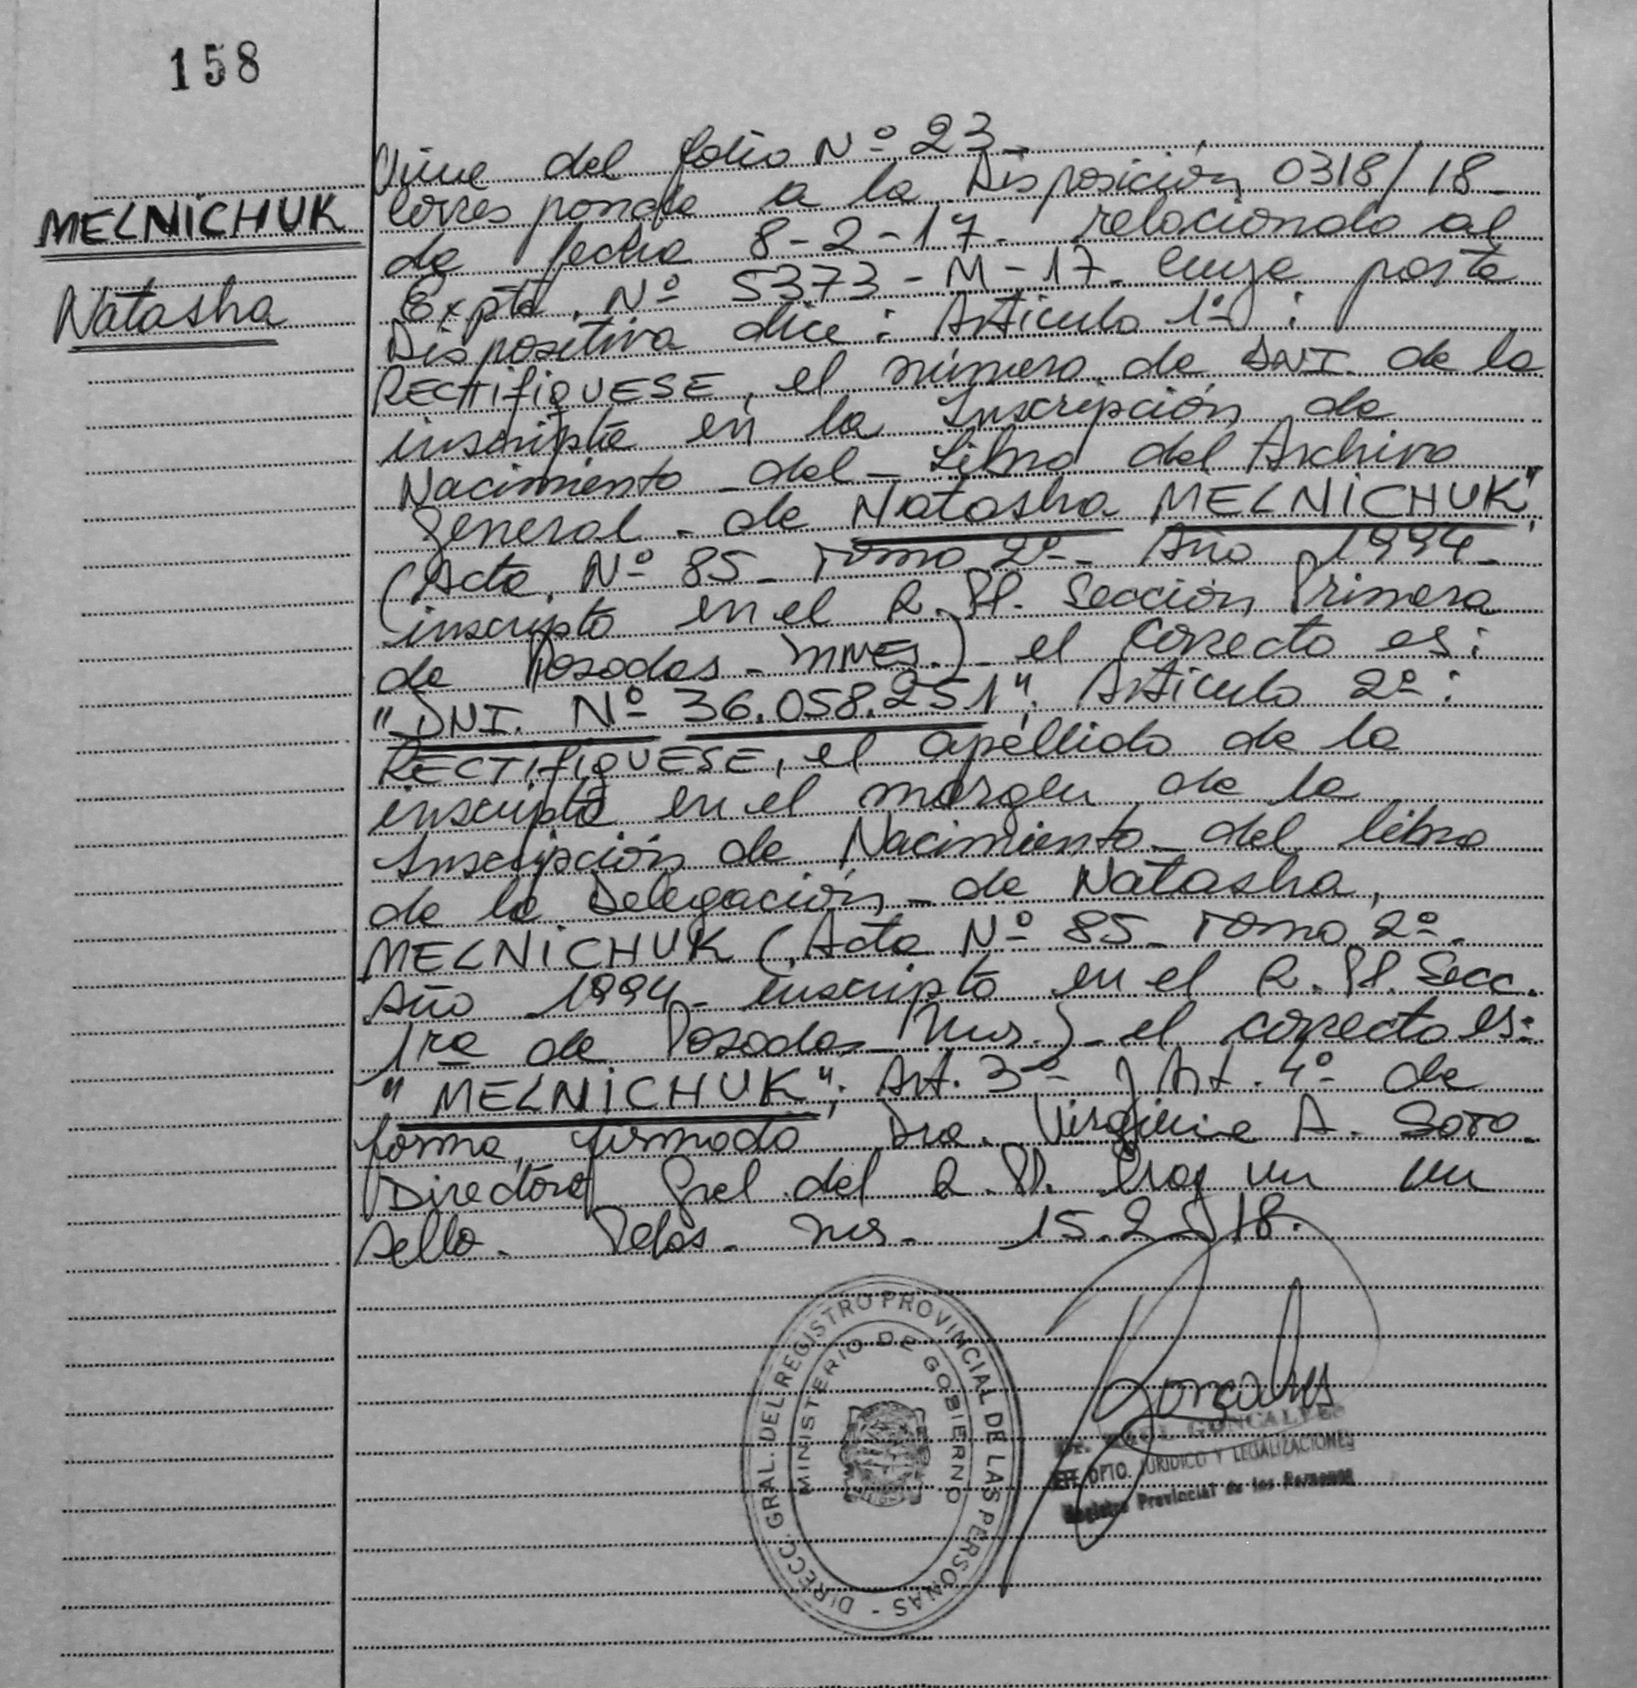 158
MELNICHUK
Natasha
Viene del folio Nº 23-
Corresponde a la Disposición 0318/18-
de fecha 8-2-17- relacionado al
Expte. Nº 5373-M-17- cuya parte
Dispositiva dice: Articulo 1º:
RECTIFIQUESE, el número de DNI. de la
inscripta en la Inscripción de
Nacimiento-del-Libro del Archivo
General-de Natasha MELNICHUK",
(Acta Nº 85- Tomo 2º- Año 1994-
inscripto en el R.P.P. Sección Primera
de Posadas-MNES.)- el correcto es:
"DNI. Nº 36.058.251"; Articulo 2º:
RECTIFIQUESE, el apellido de la
inscripta en el margen de la
Inscripción de Nacimiento-del libro
de la Delegación-de Natasha,
MELNICHUK (Acta Nº 85- Tomo 2º-
Año 1994- inscripto en el R.P.P. Secc.
1ra de Posadas-Mns.)- el correcto es:
"MELNICHUK"; Art. 3º y Art. 4º de
forma, firmado Dra. Virginia A. Soto-
Directora Gral del R.P.P. Hay un
sello- Pdas- Mns- 15-2-18.
DIRECC. GRAL. DEL REGISTRO PROVINCIAL DE LAS PERSONAS -
MINISTERIO DE GOBIERNO
Goncalves
Dr. GONCALVES
DPTO. JURIDICO Y LEGALIZACIONES
Registro Provincial de las Personas